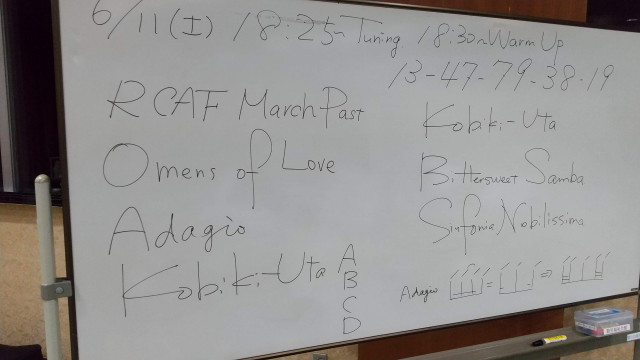 6/11(土) 18:25~Tuning 18:30~Warm Up
13-47-79-38-19
RCAF March Past
Omens of Love
Adagio
Kobiki-Uta A
B
C
D
Kobiki-Uta
Bittersweet Samba
Sinfonia Nobilissima
Adagio